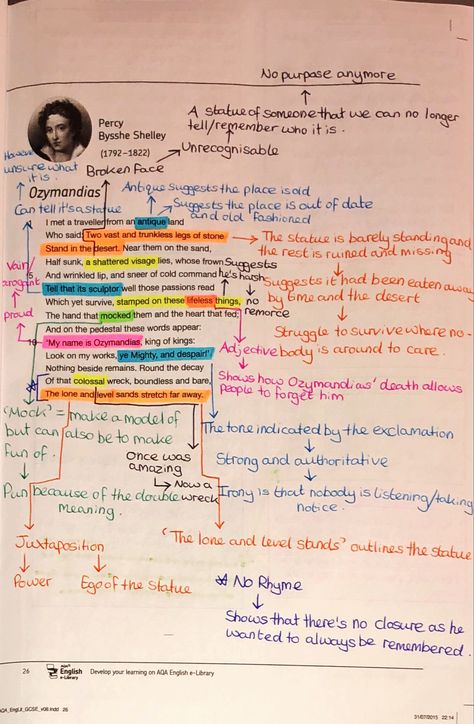 No purpose anymore
A statue of someone that we can no longer
tell/remember who it is.
Unrecognisable
Percy
Bysshe Shelley
(1792–1822)
Broken Face
However
unsure what
it is.
Can tell it's a statue
Antique suggests the place is old
Suggests the place is out of date
and old fashioned
Ozymandias
I met a traveller from an antique land
Who said: Two vast and trunkless legs of stone
Stand in the desert. Near them on the sand,
Half sunk, a shattered visage lies, whose frown
5 And wrinkled lip, and sneer of cold command
Tell that its sculptor well those passions read
Which yet survive, stamped on these lifeless things,
The hand that mocked them and the heart that fed;
And on the pedestal these words appear:
10 'My name is Ozymandias, king of kings:
Look on my works, ye Mighty, and despair!'
Nothing beside remains. Round the decay
Of that colossal wreck, boundless and bare,
The lone and level sands stretch far away.
Vain/
arrogant
proud
Suggests
he's harsh
no
remorce
The statue is barely standing and
the rest is ruined and missing
Suggests it had been eaten away
by time and the desert
Struggle to survive where no-
body is around to care.
Adjective
Shows how Ozymandias' death allows
people to forget him
'Mock' = make a model of
but can also be to make
fun of.
Pun because of the double
meaning.
Once was
amazing
Now a
wreck
The tone indicated by the exclamation
Strong and authoritative
Irony is that nobody is listening/taking
notice.
Juxtaposition
Power
Ego of the statue
'The lone and level stands' outlines the statue
* No Rhyme
Shows that there's no closure as he
wanted to always be remembered.
26
AQA
English
e-Library
Develop your learning on AQA English e-Library
AQA_EngLit_GCSE_v08.indd 26
31/07/2015 22:14